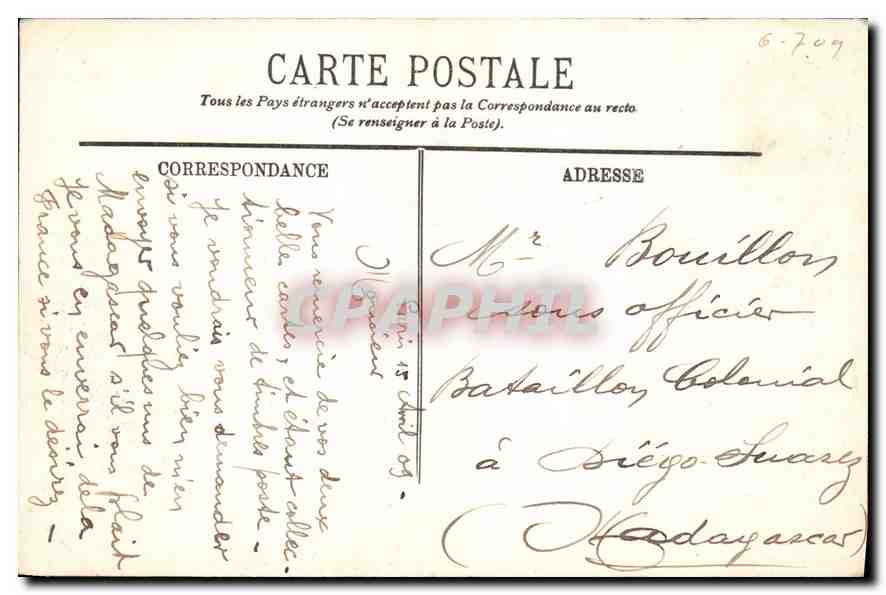 6-7 09
CARTE POSTALE
Tous les Pays étrangers n'acceptent pas la Correspondance au recto
(Se renseigner à la Poste).
CORRESPONDANCE
ADRESSE
Paris 15 Avril 09.
Monsieur
Vous remercie de vos deux
belles cartes, et étant collec-
tionneur de timbres poste -
Je voudrais vous demander
si vous vouliez bien m'en
envoyer quelques uns de
Madagascar s'il vous plait
Je vous en enverrai de la
France si vous le désirez -
Mr Bouillon
sous officier
Bataillon Colonial
à Diégo-Suarez
(Madagascar)
CPAPHIL